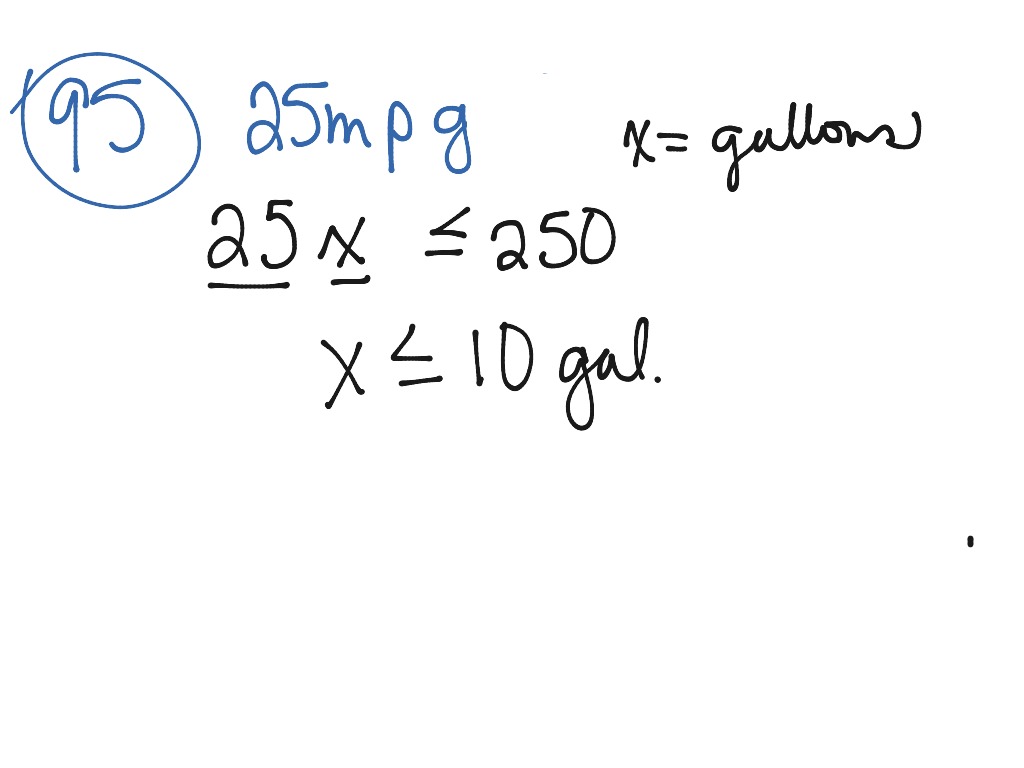 95 25mpg x = gallons
25x ≤ 250
x ≤ 10 gal.